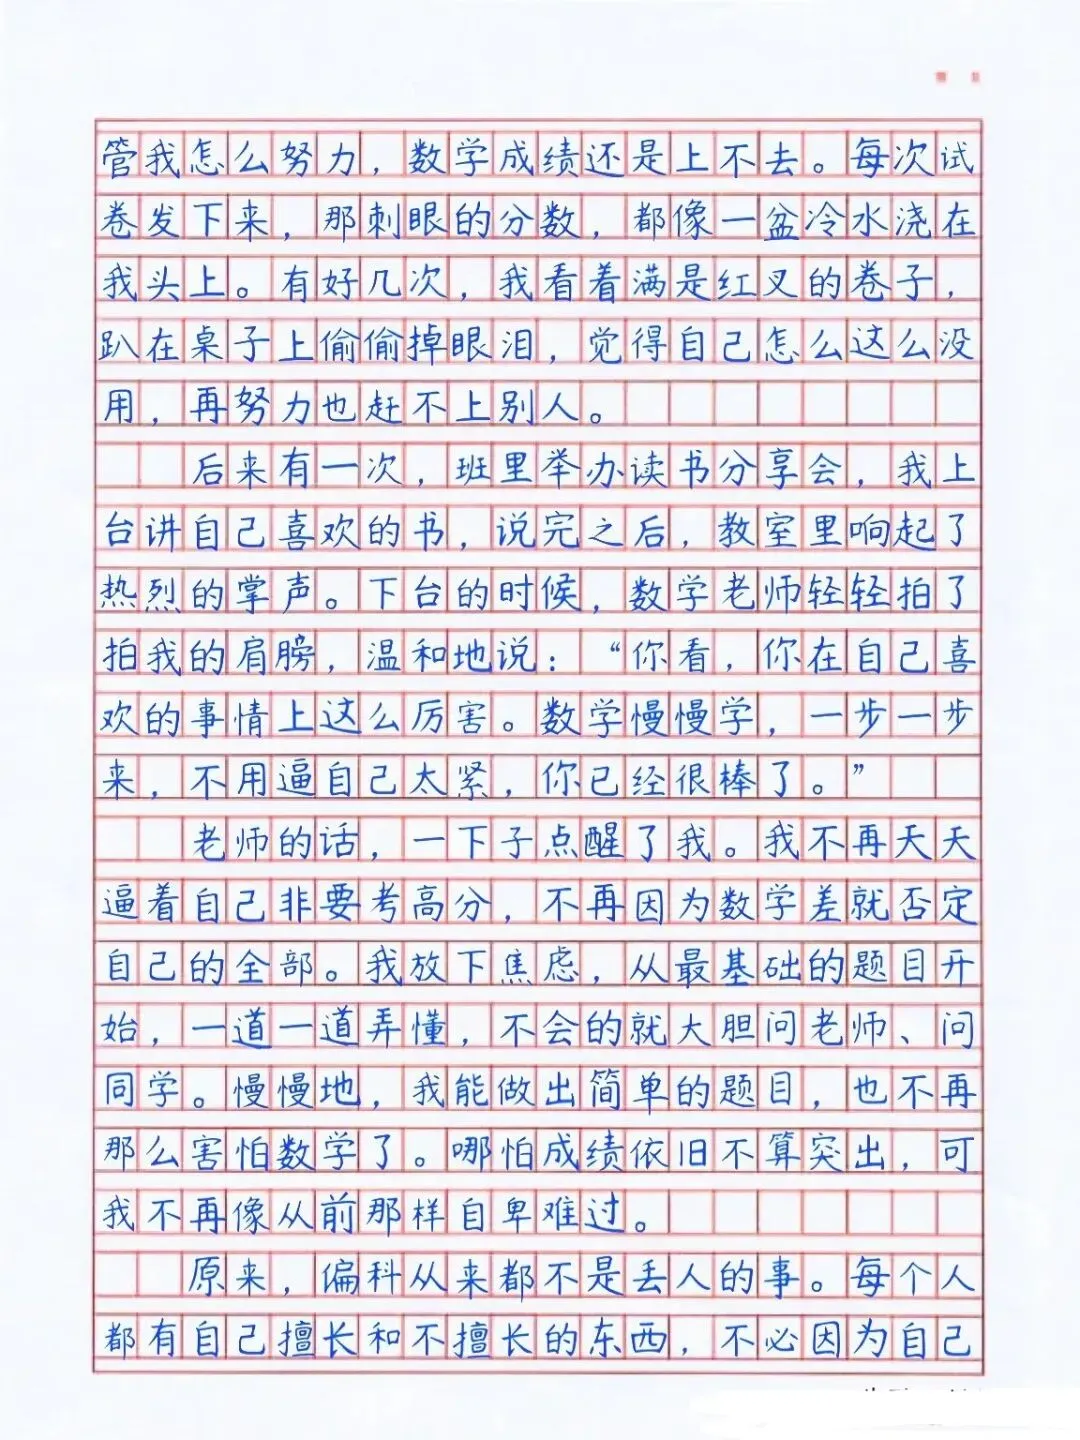 管我怎么努力，数学成绩还是上不去。每次试
卷发下来，那刺眼的分数，都像一盆冷水浇在
我头上。有好几次，我看着满是红叉的卷子，
趴在桌子上偷偷掉眼泪，觉得自己怎么这么没
用，再努力也赶不上别人。
后来有一次，班里举办读书分享会，我上
台讲自己喜欢的书，说完之后，教室里响起了
热烈的掌声。下台的时候，数学老师轻轻拍了
拍我的肩膀，温和地说：“你看，你在自己喜
欢的事情上这么厉害。数学慢慢学，一步一步
来，不用逼自己太紧，你已经很棒了。”
老师的话，一下子点醒了我。我不再天天
逼着自己非要考高分，不再因为数学差就否定
自己的全部。我放下焦虑，从最基础的题目开
始，一道一道弄懂，不会的就大胆问老师、问
同学。慢慢地，我能做出简单的题目，也不再
那么害怕数学了。哪怕成绩依旧不算突出，可
我不再像从前那样自卑难过。
原来，偏科从来都不是丢人的事。每个人
都有自己擅长和不擅长的东西，不必因为自己